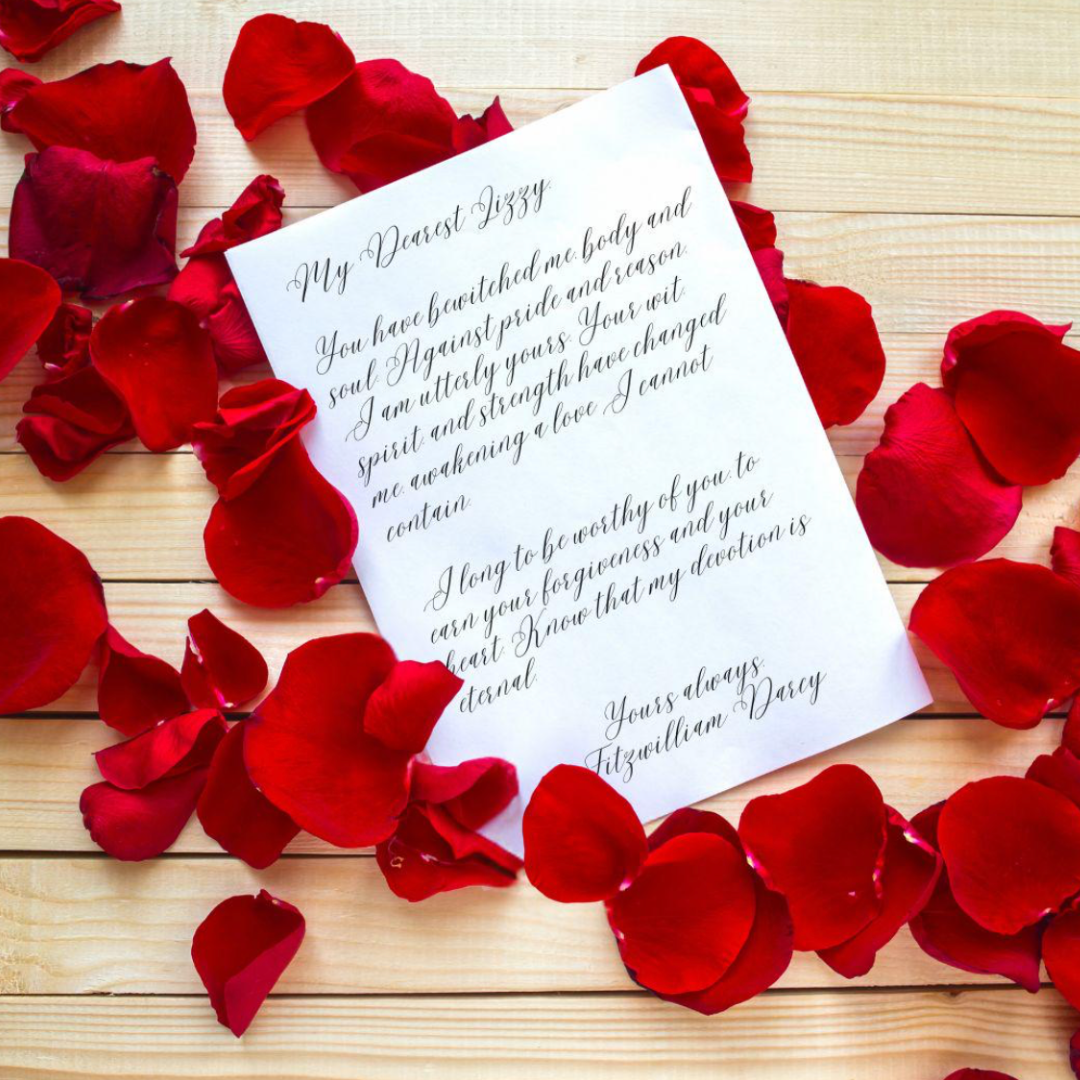 My Dearest Lizzy,
You have bewitched me, body and
soul. Against pride and reason,
I am utterly yours. Your wit,
spirit, and strength have changed
me, awakening a love I cannot
contain.
I long to be worthy of you, to
earn your forgiveness and your
heart. Know that my devotion is
eternal.
Yours always,
Fitzwilliam Darcy